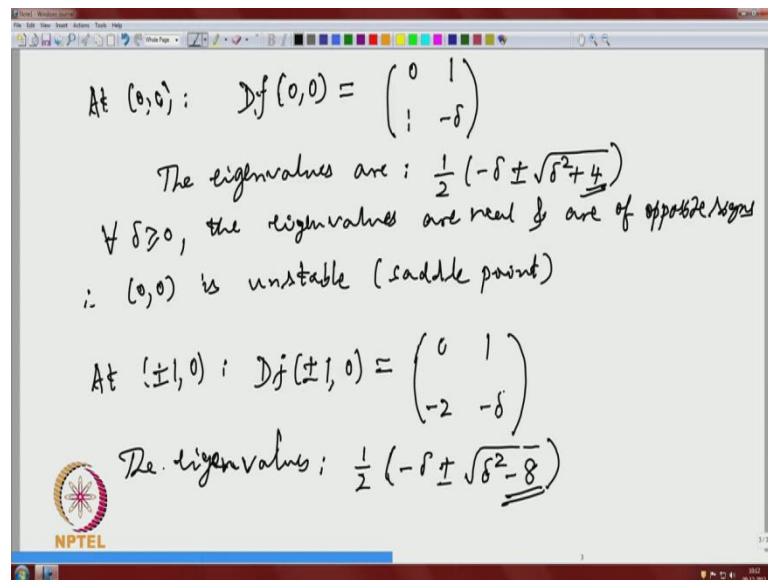 Note1 - Windows Journal
File Edit View Insert Actions Tools Help
Whole Page
B
At (0,0): Df(0,0) = (0 1
1 -δ)
The eigenvalues are : 1/2 (-δ ± √(δ²+4))
∀ δ≥0, the eigenvalues are real & are of opposite signs
∴ (0,0) is unstable (saddle point)
At (±1,0) : Df(±1,0) = (0 1
-2 -δ)
The eigenvalues : 1/2 (-δ ± √(δ²-8))
NPTEL
3